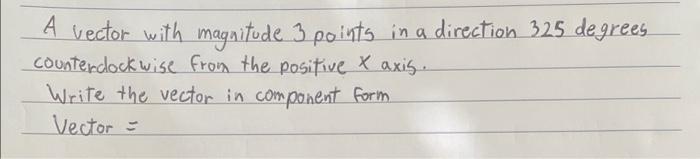 A vector with magnitude 3 points in a direction 325 degrees
counterclockwise from the positive x axis.
Write the vector in component form
Vector =